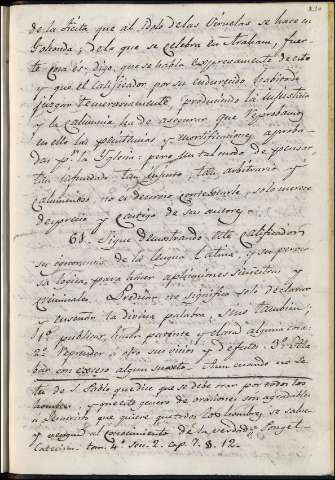 de la Fiesta que al Idolo de las Viruelas se hace en
Golconda; de lo que se celebra en Araban, fuer-
te cosa es, digo, que se habla expresamente de esto
y que el Calificador por su endurecido habito de
juzgar temerariamente, produciendo la injusticia
y la calumnia ha de asegurar que reprobamos
en ello las penitencias y mortificaciones aproba-
das pr. la Yglesia: pero un tal modo de pensar
tan infundado, tan injusto, tan arbitrario y
calumnioso no es decoroso contestarle, solo merece
desprecio y castigo de su autor.
68. Sigue demostrando este calificador
su ignorancia de la lengua Latina, y su perver-
sa logica, para hacer aplicaciones siniestras y
criminales. Predicar no significa solo declarar
y enseñar la divina palabra, sino tambien;
1º publicar, hacer patente y clara alguna cosa:
2º Reprender a otro sus vicios y defectos: 3º Ala-
bar con exceso algun sugeto. Aun cuando no se
ta de S. Pablo que dice que se debe orar por todos los
hombres, y que este genero de oraciones son agradables
a Jesucristo que quiere que todos los hombres se salven
y vengan al conocimiento de la verdad. Pouget
Catecism. tom. 4º Sec. 2. cap. 7. §. 12.